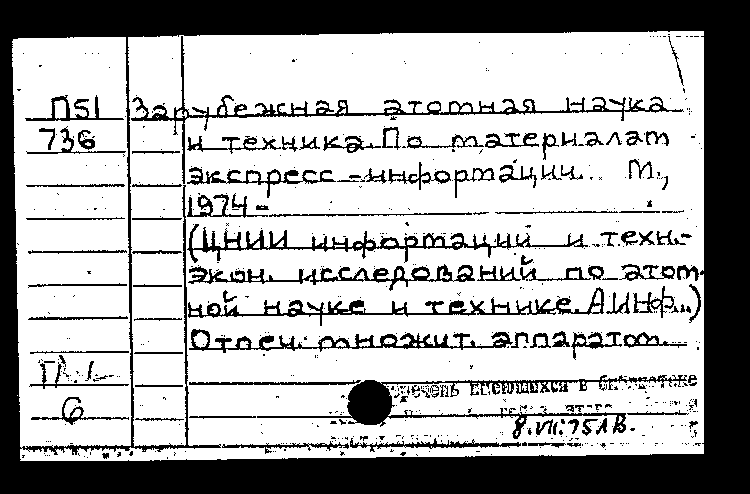 П51 Зарубежная атомная наука
736 и техника. По материалам
экспресс-информации. М.,
1974-
(ЦНИИ информации и техн.-
экон. исследований по атом-
ной науке и технике. АИНФ..)
Отпеч. множит. аппаратом.
речень имеющихся в библиотеке
6
8.VII.75 1В.